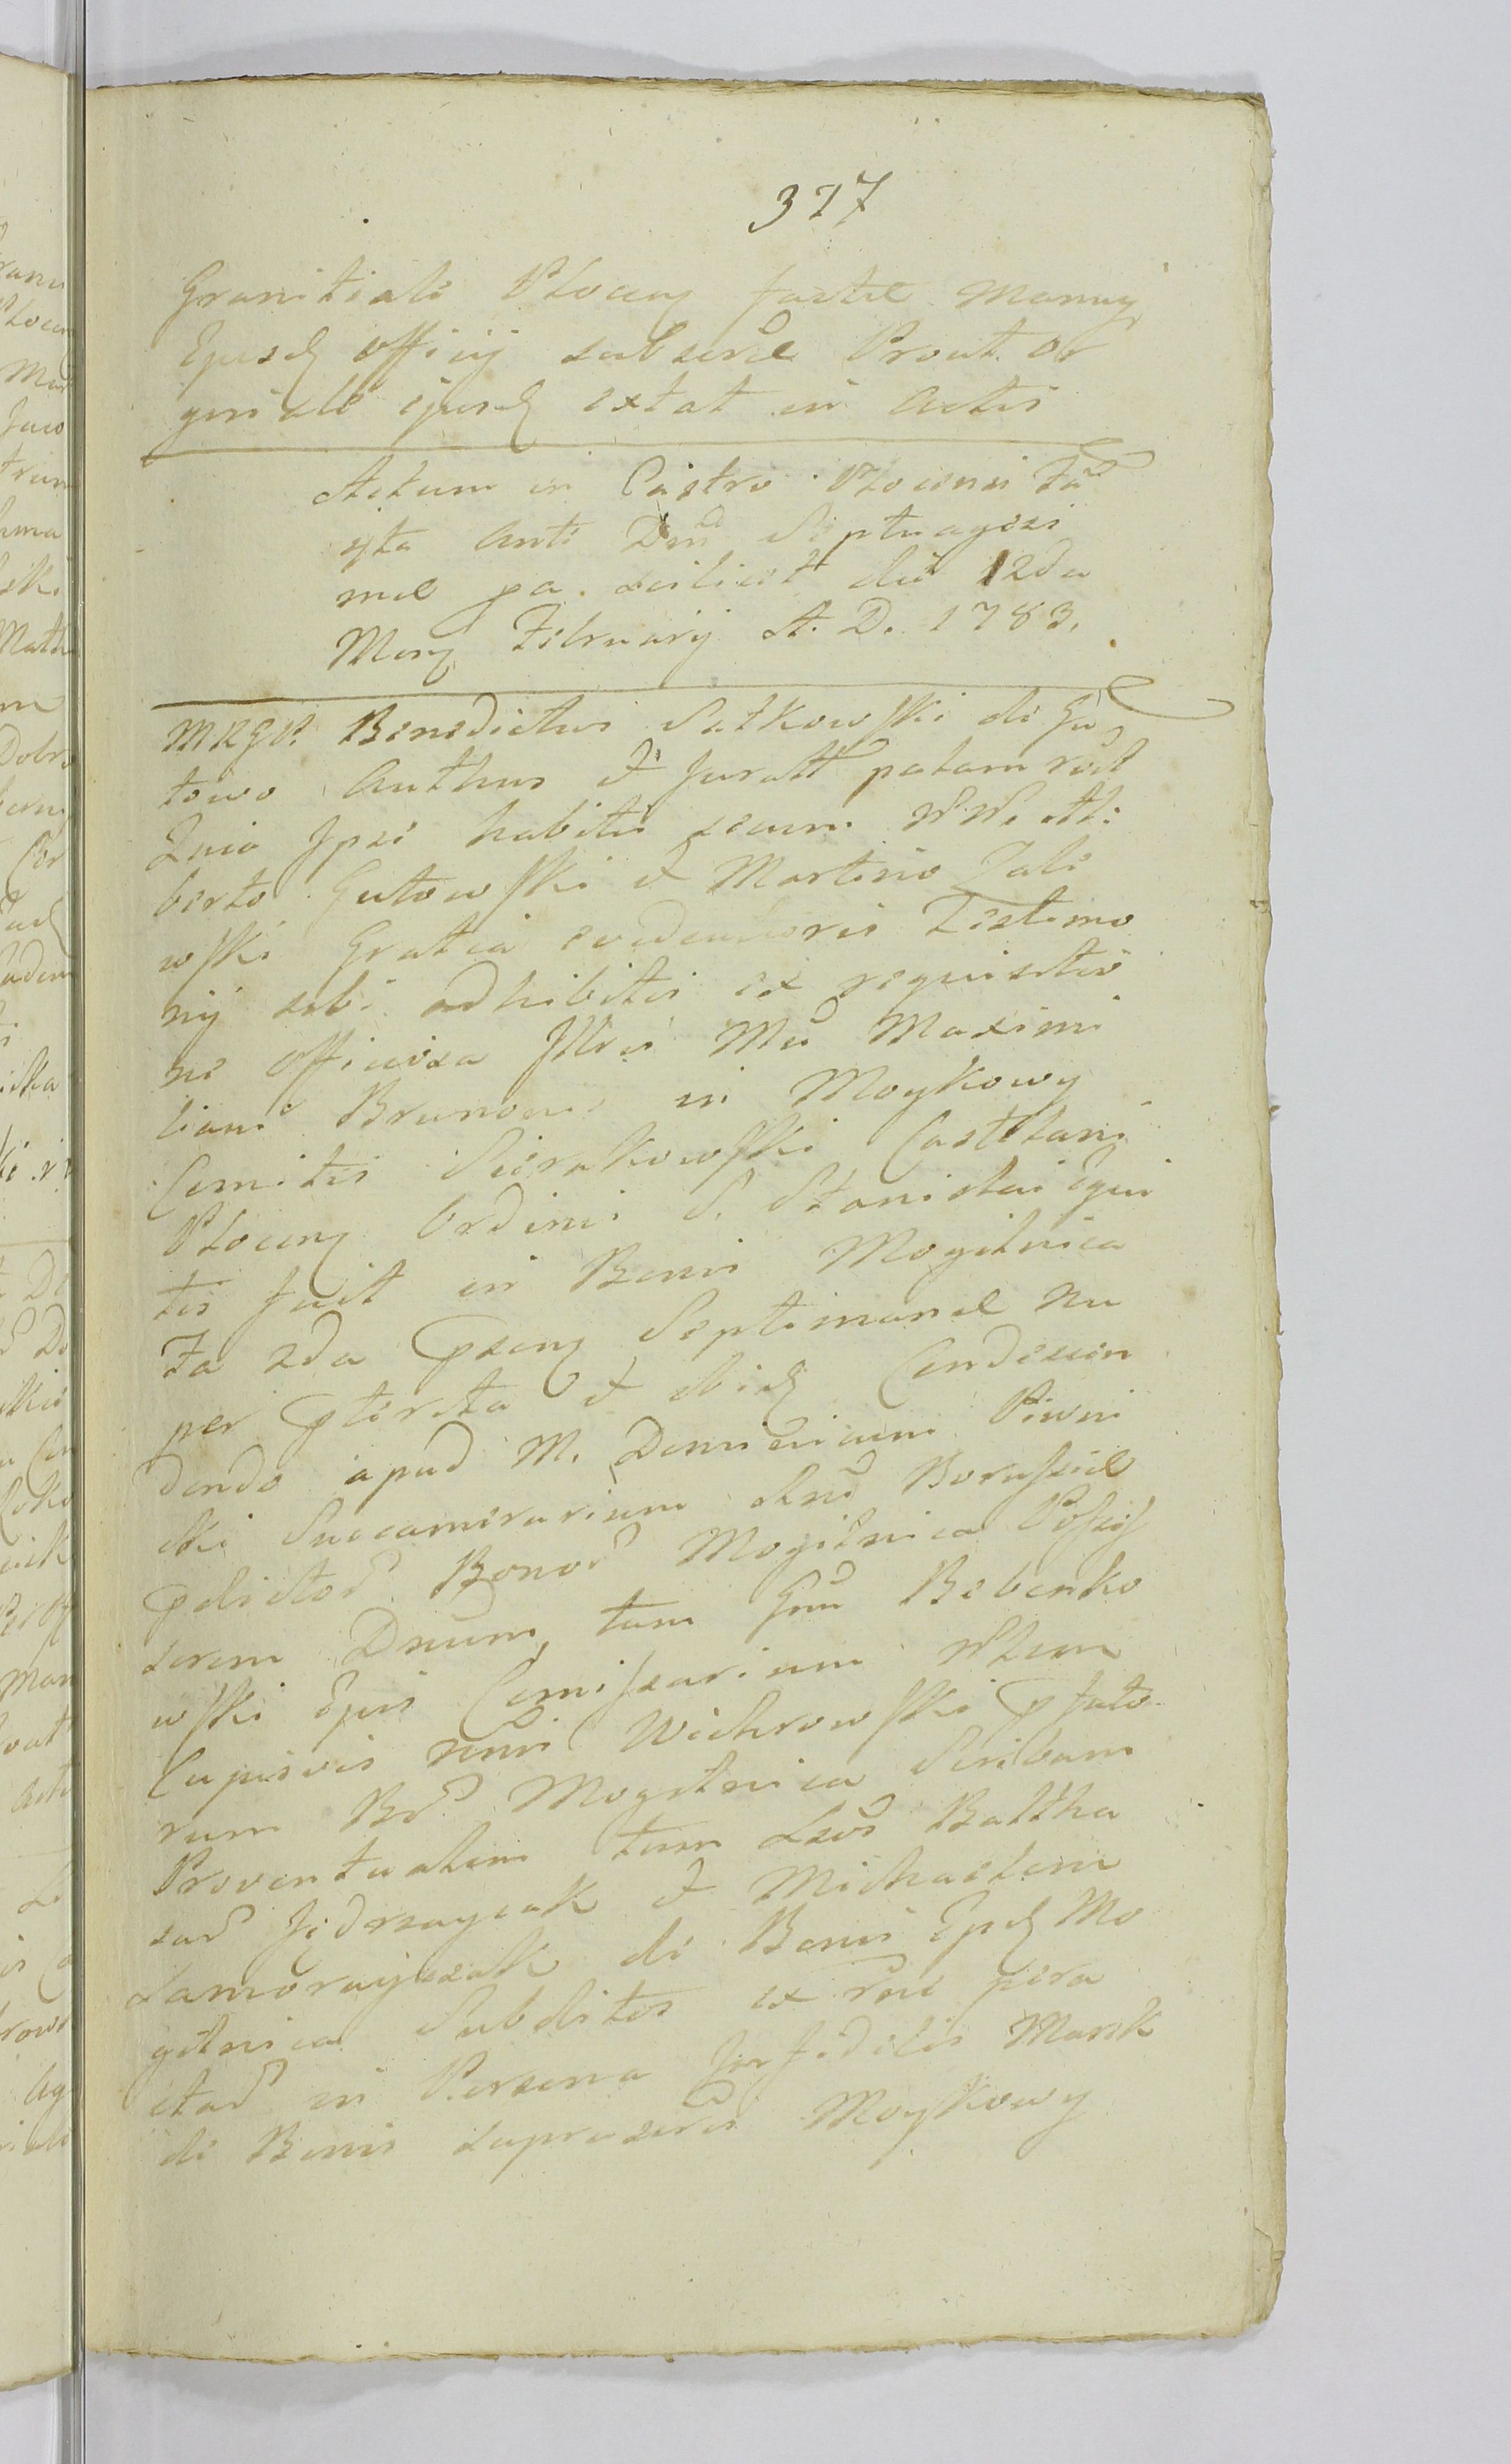 377
Granitiali Plocen factae Manuq
Ejusd officij subscrae Prout Ori
ginale ejusd extat in Actis
Actum in Castro Plocensi fa
4ta Ante Dnm Septuagesi
mae pa. scilicet die 12da
Mens Februarij A. D. 1783.
MRGP. Benedictus Sutkowski de Gu
towo Authus et Juratt palam recit
Quia Ipse habitis secum NN. Al:
berto Gutowski et Martino Zale
wski Gratia evidentioris Testimo
nij sibi adhibitis ex requisitio
ne officiosa Illris Mci Maximi
liani Brunonis in Moykowy
Comitis Sierakowski Castellani
Plocen Ordinis S. Stanislai Equi
tis fuit in Bonis Mogilnica
fa 2da psen Septimanae nu
per pterita et ibid Condescen
dendo apud M. Dominicum Piwni
cki Succamerarium Borussiae
pdictor Bonor Mogilnica Possess
sorem Dnum, tum Gnu Bebenko
wski Ejus Comissarium
Cujusvis nois Wichrowski pfato
rum Br Mogilnica Scribam
Proventualem tum Lbos Baltha
sar Jędrzayczak et Michaelem
de Bonis Ejusd Mo
gilnica Subditos ex rne pera
ctae in Persona Infidelis Marek
de Bonis suprascris Moykowy